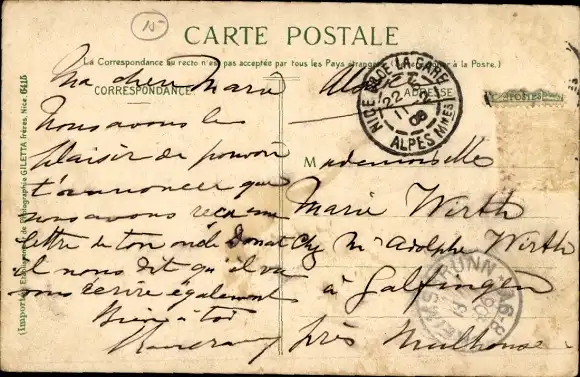 15
CARTE POSTALE
La Correspondance au recto n'est pas acceptée par tous les Pays étrangers à la Poste.)
CORRESPONDANCE
ADRESSE
Ma chère Marie
Nous avons le
plaisir de pouvoir
t'annoncer que
nous avons reçu une
lettre de ton oncle Donat
il nous dit qu'il va
vous écrire également
Bien à toi
Mademoiselle
Marie Wirth
Chz Mr Adolphe Wirth
à Galfingen
près Mulhouse
DE LA GARE
22
08
ALPES Mmes
POSTES
BRUNN
GILETTA frères, Nice 6415